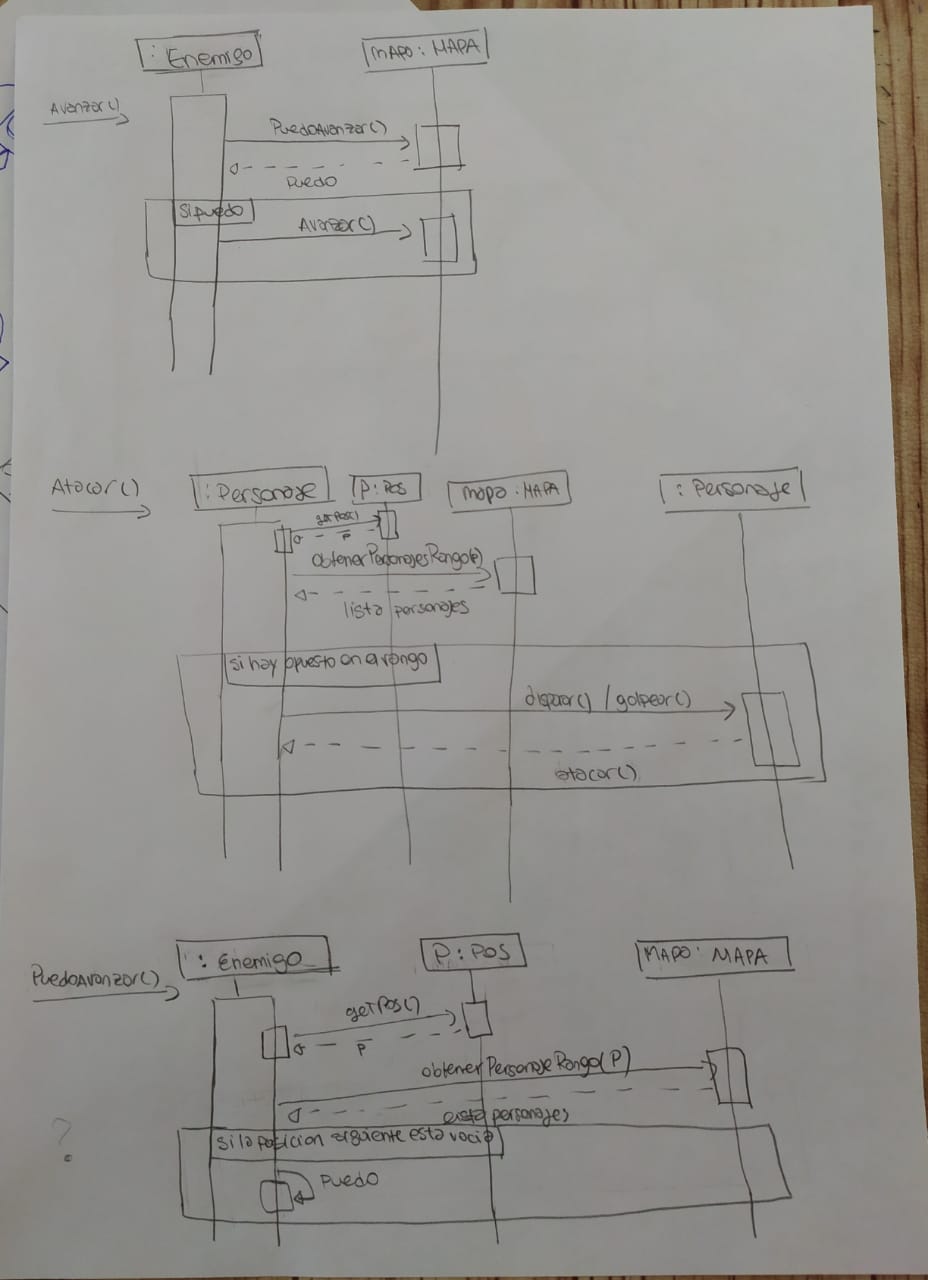 : Enemigo
MAPA : MAPA
Avanzar()
PuedoAvanzar()
Puedo
Si puedo
Avanzar()
Atacar()
: Personaje
P : POS
mapa : MAPA
: Personaje
getPos()
P
obtenerPersonajesRango(P)
lista personajes
si hay opuesto en el rango
disparar() / golpear()
atacar()
PuedoAvanzar()
: Enemigo
P : POS
MAPA : MAPA
getPos()
P
obtenerPersonajeRango(P)
lista personajes
?
Si la posicion siguiente esta vacia
Puedo